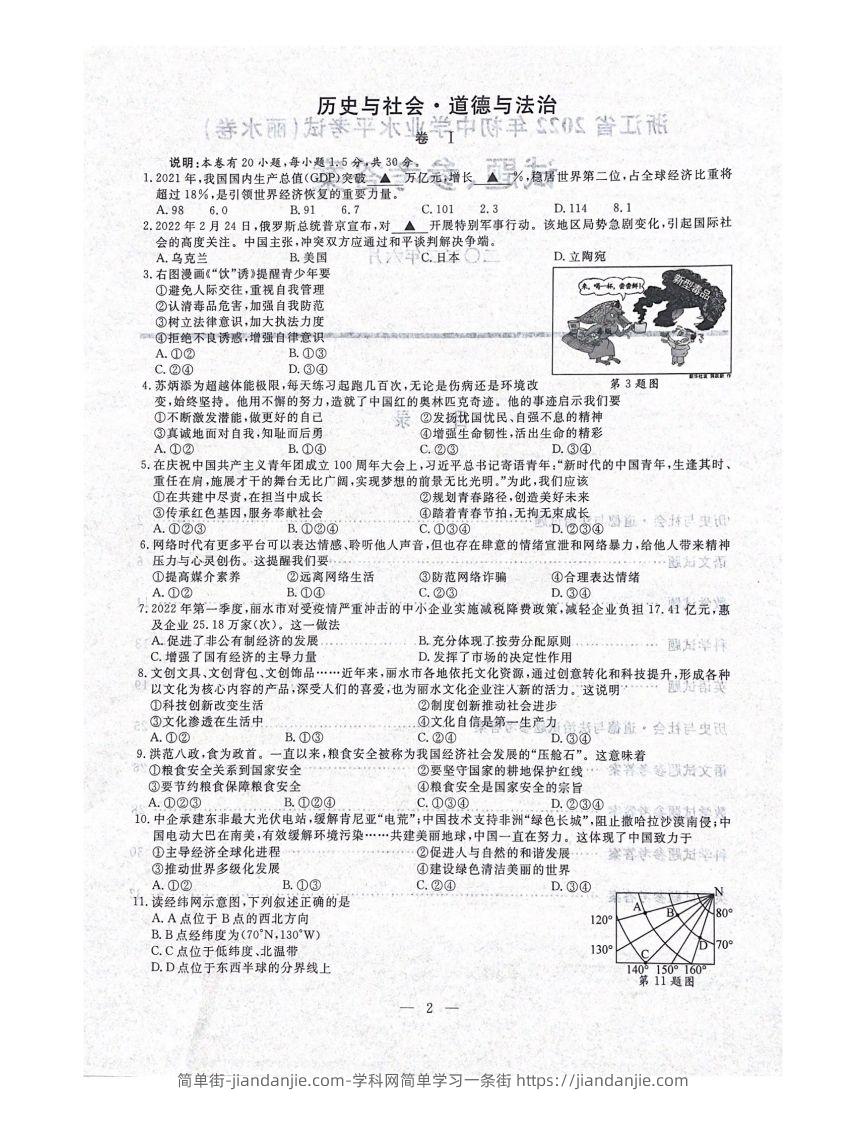 历史与社会·道德与法治
卷 I
说明:本卷有20小题,每小题1.5分,共30分。
1.2021年,我国国内生产总值(GDP)突破 ▲ 万亿元,增长 ▲ %,稳居世界第二位,占全球经济比重将
超过18%,是引领世界经济恢复的重要力量。
A.98 6.0 B.91 6.7 C.101 2.3 D.114 8.1
2.2022年2月24日,俄罗斯总统普京宣布,对 ▲ 开展特别军事行动。该地区局势急剧变化,引起国际社
会的高度关注。中国主张,冲突双方应通过和平谈判解决争端。
A.乌克兰 B.美国 C.日本 D.立陶宛
3.右图漫画《“饮”诱》提醒青少年要
①避免人际交往,重视自我管理
②认清毒品危害,加强自我防范
③树立法律意识,加大执法力度
④拒绝不良诱惑,增强自律意识
A.①② B.①③
C.②④ D.③④
来,喝一杯,尝尝鲜!
新型毒品
第3题图
4.苏炳添为超越体能极限,每天练习起跑几百次,无论是伤病还是环境改
变,始终坚持。他用不懈的努力,造就了中国红的奥林匹克奇迹。他的事迹启示我们要
①不断激发潜能,做更好的自己 ②发扬忧国忧民、自强不息的精神
③真诚地面对自我,知耻而后勇 ④增强生命韧性,活出生命的精彩
A.①② B.①④ C.②③ D.③④
5.在庆祝中国共产主义青年团成立100周年大会上,习近平总书记寄语青年:“新时代的中国青年,生逢其时、
重任在肩,施展才干的舞台无比广阔,实现梦想的前景无比光明。”为此,我们应该
①在共建中尽责,在担当中成长 ②规划青春路径,创造美好未来
③传承红色基因,服务奉献社会 ④踏着青春节拍,无拘无束成长
A.①②③ B.①②④ C.①③④ D.②③④
6.网络时代有更多平台可以表达情感、聆听他人声音,但也存在肆意的情绪宣泄和网络暴力,给他人带来精神
压力与心灵创伤。这提醒我们要
①提高媒介素养 ②远离网络生活 ③防范网络诈骗 ④合理表达情绪
A.①② B.①④ C.②③ D.③④
7.2022年第一季度,丽水市对受疫情严重冲击的中小企业实施减税降费政策,减轻企业负担17.41亿元,惠
及企业25.18万家(次)。这一做法
A.促进了非公有制经济的发展 B.充分体现了按劳分配原则
C.增强了国有经济的主导力量 D.发挥了市场的决定性作用
8.文创文具、文创背包、文创饰品……近年来,丽水市各地依托文化资源,通过创意转化和科技提升,形成各种
以文化为核心内容的产品,深受人们的喜爱,也为丽水文化企业注入新的活力。这说明
①科技创新改变生活 ②制度创新推动社会进步
③文化渗透在生活中 ④文化自信是第一生产力
A.①② B.①③ C.②④ D.③④
9.洪范八政,食为政首。一直以来,粮食安全被称为我国经济社会发展的“压舱石”。这意味着
①粮食安全关系到国家安全 ②要坚守国家的耕地保护红线
③要节约粮食保障粮食安全 ④粮食安全是国家安全的宗旨
A.①②③ B.①②④ C.①③④ D.②③④
10.中企承建东非最大光伏电站,缓解肯尼亚“电荒”;中国技术支持非洲“绿色长城”,阻止撒哈拉沙漠南侵;中
国电动大巴在南美,有效缓解环境污染……共建美丽地球,中国一直在努力。这体现了中国致力于
①主导经济全球化进程 ②促进人与自然的和谐发展
③推动世界多级化发展 ④建设绿色清洁美丽的世界
A.①② B.①③ C.②④ D.③④
11.读经纬网示意图,下列叙述正确的是
A.A点位于B点的西北方向
B.B点经纬度为(70°N,130°W)
C.C点位于低纬度、北温带
D.D点位于东西半球的分界线上
N
A
B
80°
120°
D
70°
130°
C
140° 150° 160°
第11题图
— 2 —
简单街-jiandanjie.com-学科网简单学习一条街 https://jiandanjie.com